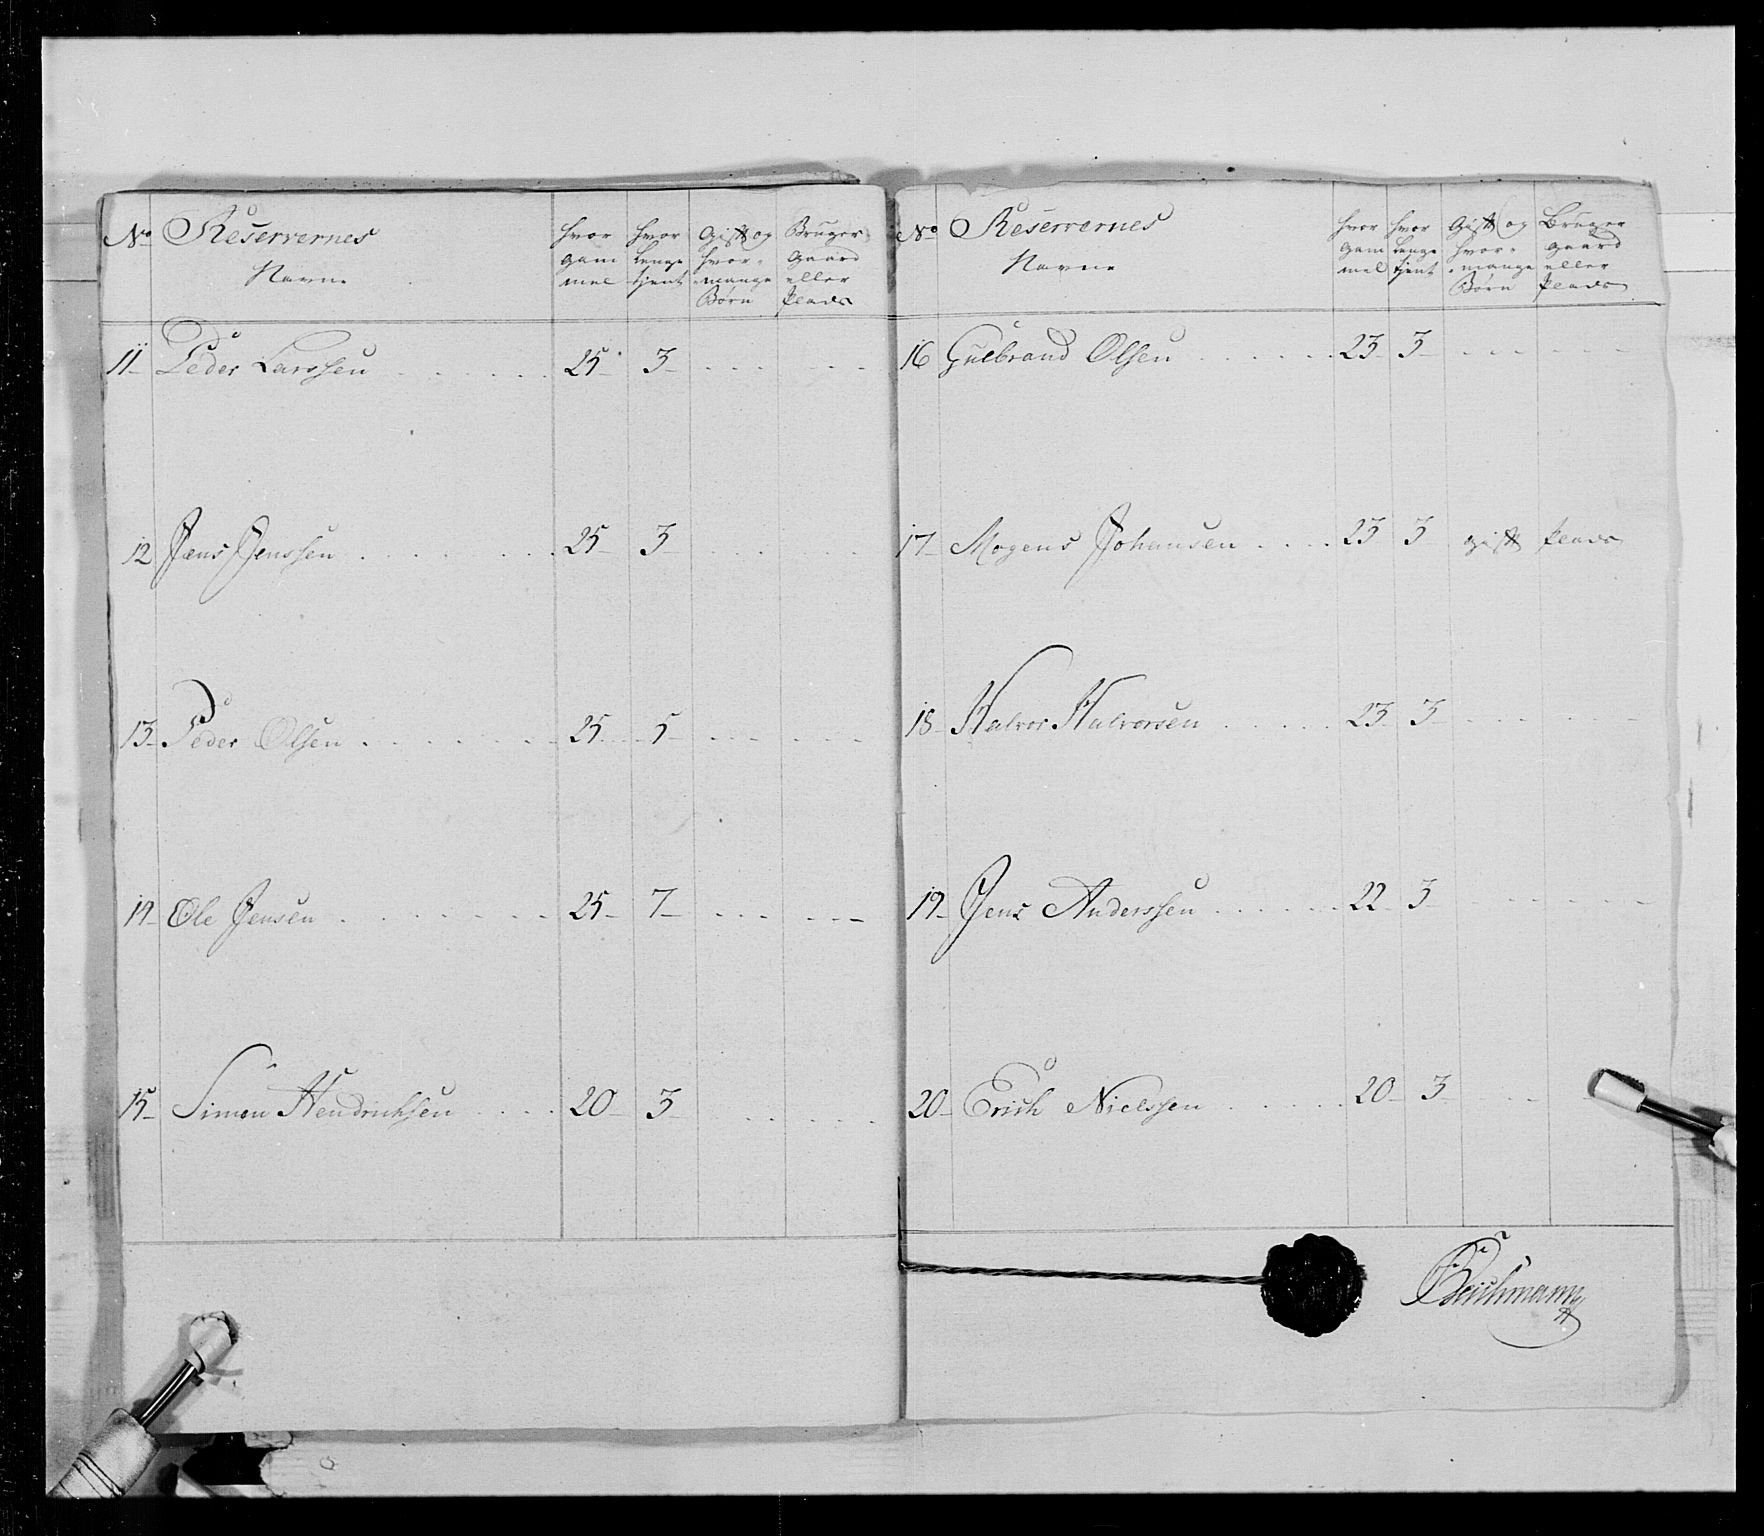 No Reserrernes Navne hvor gam mel hvor Lenge tjent Gift og hvor- mange Børn Bruger Gaard eller Plads
11 Peder Larssen 25 3
12 Jens Jenssen 25 3
13 Peder Olsen 25 5
14 Ole Jensen 25 7
15 Simen Hendrichsen 20 3
No Reserrernes Navne hvor gam mel hvor Lenge tjent Gift og hvor- mange Børn Bruger gaard eller Plads
16 Gulbrand Olsen 23 3
17 Mogens Johansen 23 3 gift Plads
18 Halvor Halvorsen 23 3
19 Jens Anderssen 22 3
20 Erich Nielssen 20 3